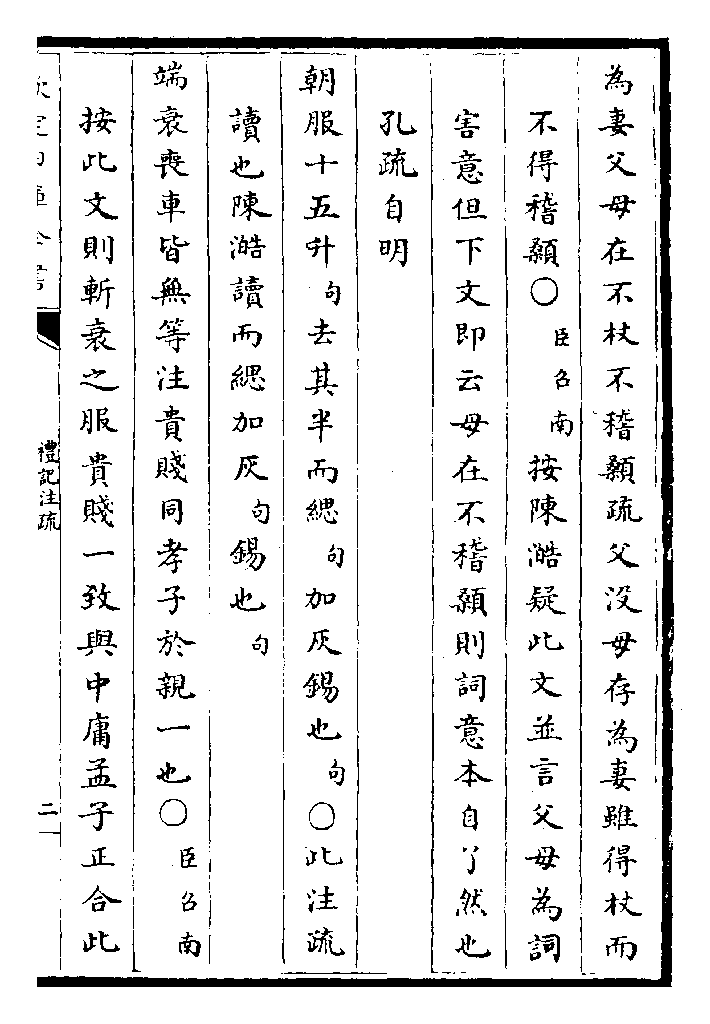 為妻父母在不杖不稽顙疏父没母存為妻雖得杖而
不得稽顙○臣召南按陳澔疑此文並言父母為詞
害意但下文即云母在不稽顙則詞意本自了然也
孔疏自明
朝服十五升句去其半而緦句加灰錫也句○此注疏
讀也陳澔讀而緦加灰句錫也句
端衰喪車皆無等注貴賤同孝子於親一也○臣召南
按此文則斬衰之服貴賤一致與中庸孟子正合此
禮記注疏
二